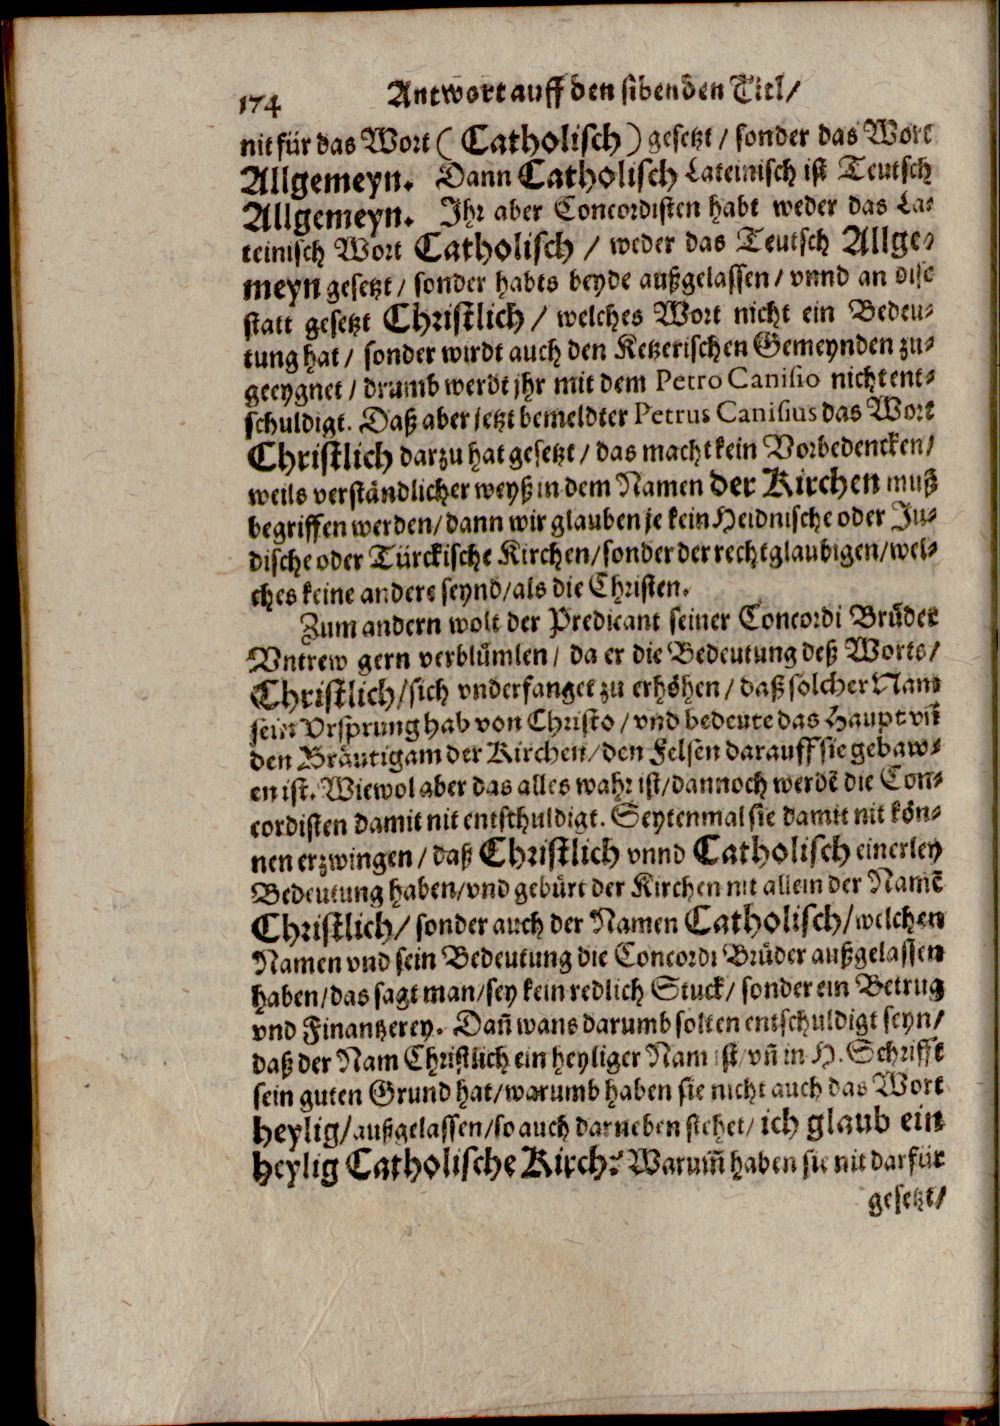 174 Antwort auff den sibenden Titl/
nit für das Wort ( Catholisch ) gesetzt / sonder das Wort
Allgemeyn. Dann Catholisch Lateinisch ist Teutsch
Allgemeyn. Ihr aber Concordisten habt weder das La-
teinisch Wort Catholisch / weder das Teutsch Allge-
meyn gesetzt / sonder habts beyde außgelassen / vnnd an dise
statt gesetzt Christlich / welches Wort nicht ein Bedeu-
tung hat / sonder wirdt auch den Ketzerischen Gemeynden zu-
geeygnet / drumb werdt jhr mit dem Petro Canisio nicht ent-
schuldigt. Daß aber jetzt bemeldter Petrus Canisius das Wort
Christlich darzu hat gesetzt / das macht kein Vorbedencken /
weils verständlicher weyß in dem Namen der Kirchen muß
begriffen werden / dann wir glauben je kein Heidnische oder Jü-
dische oder Türckische Kirchen / sonder der rechtglaubigen / wel-
ches keine andere seynd / als die Christen.
Zum andern wolt der Predicant seiner Concordi Brůder
Vntrew gern verblůmlen / da er die Bedeutung deß Worts /
Christlich / sich vnderfanget zu erhöhen / daß solcher Nam
sein Vrsprung hab von Christo / vnd bedeute das Haupt vñ
den Bräutigam der Kirchen / den Felsen darauff sie gebaw-
en ist. Wiewol aber das alles wahr ist / dannoch werdẽ die Con-
cordisten damit nit entschuldigt. Seytenmal sie damit nit kön-
nen erzwingen / daß Christlich vnnd Catholisch einerley
Bedeutung haben / vnd gebürt der Kirchen nit allein der Namẽ
Christlich / sonder auch der Namen Catholisch / welchen
Namen vnd sein Bedeutung die Concordi Brůder außgelassen
haben / das sagt man / sey kein redlich Stuck / sonder ein Betrug
vnd Finantzerey. Dañ wans darumb solten entschuldigt seyn /
daß der Nam Christlich ein heyliger Nam ist / vñ in H. Schrifft
sein guten Grund hat / warumb haben sie nicht auch das Wort
heylig / außgelassen / so auch darneben stehet / ich glaub ein
heylig Catholische Kirch? Warum̃ haben sie nit darfür
gesetzt /